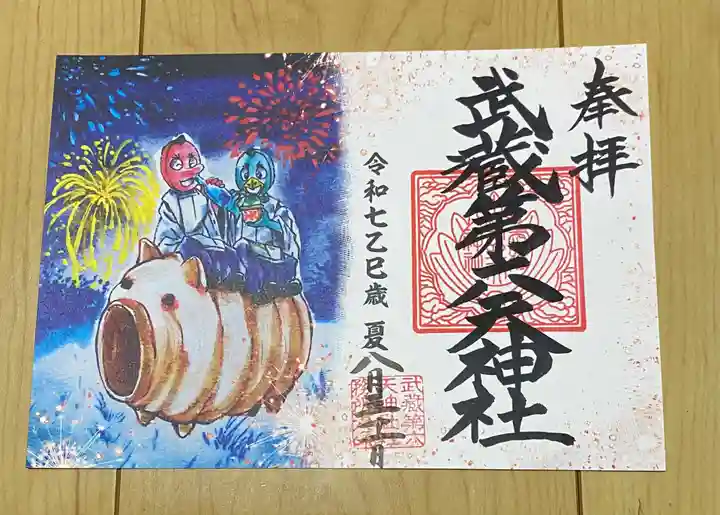 奉拝
武蔵第六天神社
令和七乙巳歳 夏 八月三十一日
武蔵第六
天神社